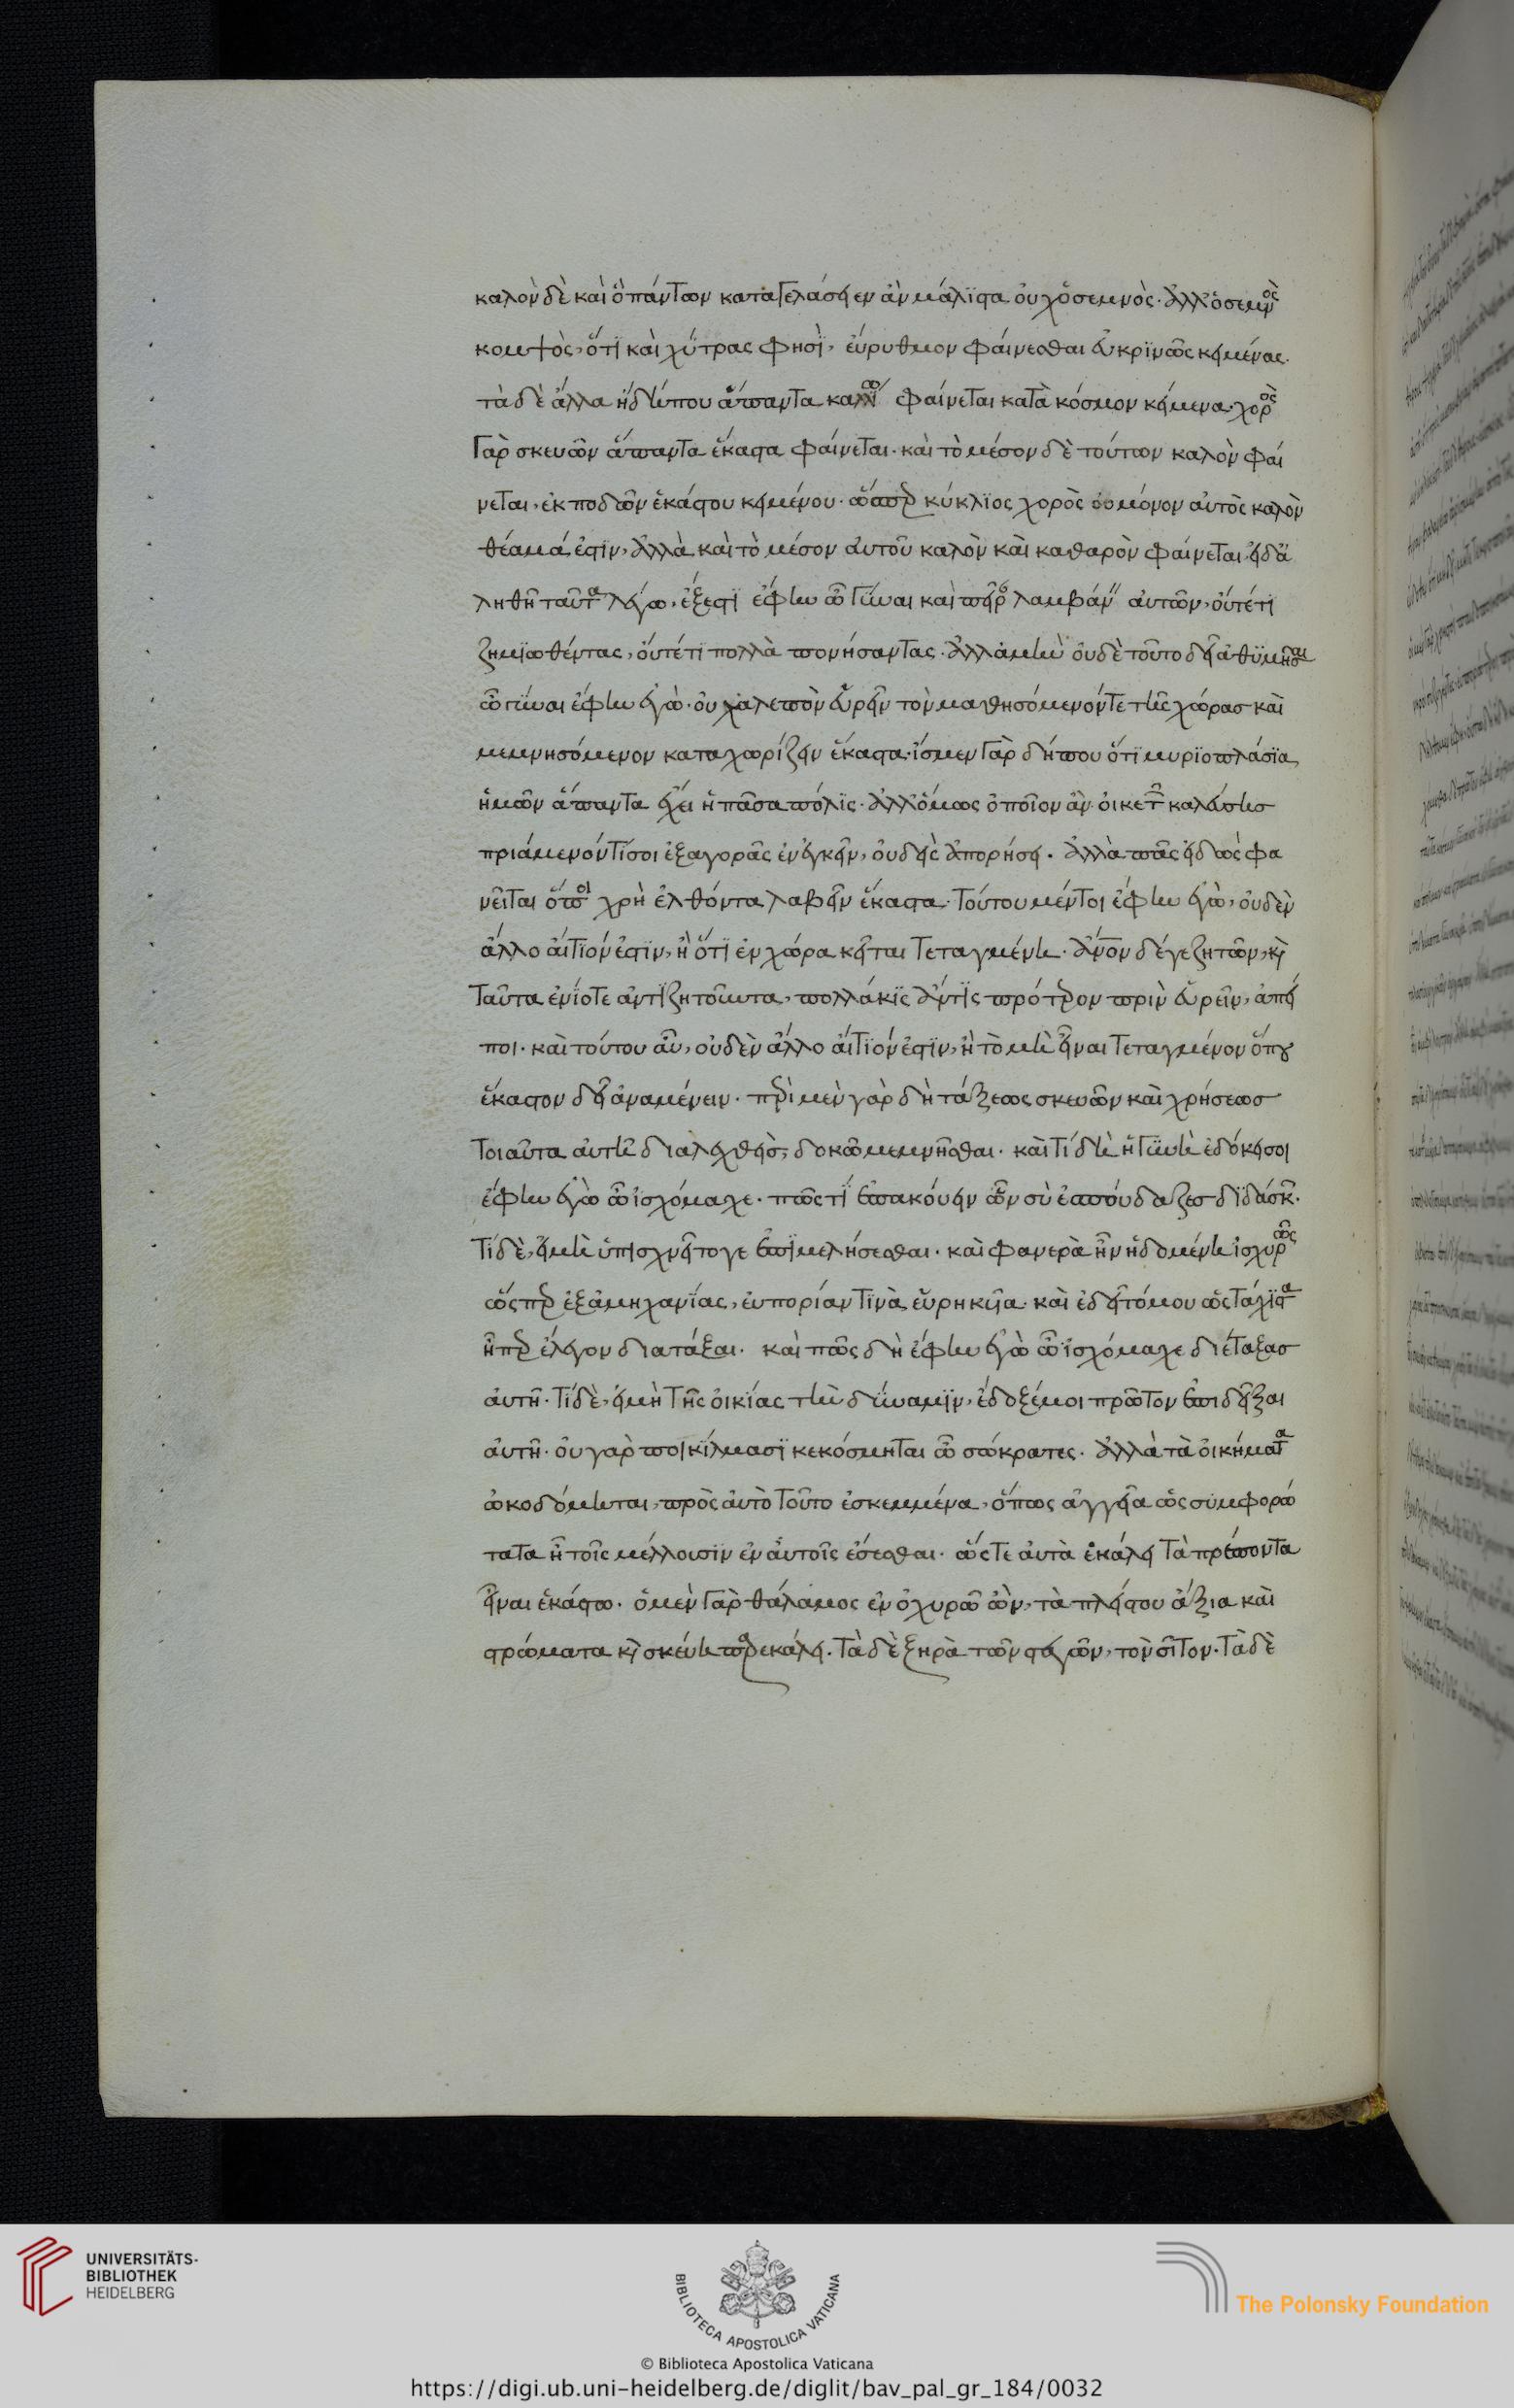 καλὸν δὲ καὶ ὃ πάντων καταγελάσειεν ἂν μάλιστα οὐχ ὁ σεμνὸς. ἀλλ ὁ σεμνὸς
κομψὸς, ὅτι καὶ χύτρας φησὶ, εὔρυθμον φαίνεσθαι εὐκρινῶς κειμένας.
τὰ δὲ ἄλλα ἤδη που ἅπαντα καλλίω φαίνεται κατὰ κόσμον κείμενα. χορὸς
γὰρ σκευῶν ἅπαντα ἕκαστα φαίνεται. καὶ τὸ μέσον δὲ τούτων καλὸν φαί
νεται, ἐκποδῶν ἑκάστου κειμένου. ὥσπερ κύκλιος χορὸς οὐ μόνον αὐτὸς καλὸν
θέαμά ἐστιν, ἀλλὰ καὶ τὸ μέσον αὐτοῦ καλὸν καὶ καθαρὸν φαίνεται. εἰ δ ἀ
ληθῆ ταῦτα λέγω, ἔξεστι ἔφην ὦ γύναι καὶ πεῖραν λαμβάνειν αὐτῶν, οὔτέ τι
ζημιωθέντας, οὔτέ τι πολλὰ πονήσαντας. ἀλλὰ μὴν οὐδὲ τοῦτο δεῖ ἀθυμῆσαι
ὦ γύναι ἔφην ἐγὼ. οὐ χαλεπὸν εὑρεῖν τὸν μαθησόμενόν τε τὴς χώρας καὶ
μεμνησόμενον καταχωρίζειν ἕκαστα. ἴσμεν γὰρ δήπου ὅτι μυριοπλάσια
ἡμῶν ἅπαντα ἔχει ἡ πᾶσα πόλις. ἀλλ ὅμως ὁποῖον ἂν οἰκετῶν καλέσης
πριάμενόν τί σοι ἐξ ἀγορᾶς ἐνεγκεῖν, οὐδεὶς ἀπορήσει. ἀλλὰ πᾶς εἰδὼς φα
νεῖται ὅποι χρὴ ἐλθόντα λαβεῖν ἕκαστα. τούτου μέντοι ἔφην ἐγὼ, οὐδὲν
ἄλλο αἴτιόν ἐστιν, ἢ ὅτι ἐν χώρα κεῖται τεταγμένη. ἄνον δέ γε ζητῶν, κὶ
ταῦτα ἐνίοτε ἀντιζητοῦντα, πολλάκις ἄν τις πρότερον πρὶν εὑρεῖν, ἀπεί
ποι. καὶ τούτου αὖ, οὐδὲν ἄλλο αἴτιόν ἐστιν, ἢ τὸ μὴ εἶναι τεταγμένον ὅπου
ἕκαστον δεῖ ἀναμένειν. περὶ μὲν γὰρ δὴ τάξεως σκευῶν καὶ χρήσεως
τοιαῦτα αὐτῆ διαλεχθεὶς, δοκῶ μεμνῆσθαι. καὶ τί δὴ ἡ γυνὴ ἐδόκει σοι
ἔφην ἐγὼ ὦ ἰσχόμαχε. πῶς τί ἐπακούειν ὧν σὺ ἐσπούδαζες διδάσκ.
τί δὲ, εἰ μὴ ὑπισχνεῖτό γε ἐπιμελήσεσθαι. καὶ φανερὰ ἦν ἡδομένη ἰσχυρῶς
ὥςπερ ἐξ ἀμηχανίας, εὐπορίαν τινὰ εὑρηκυῖα. καὶ ἐδεῖτό μου ὡς τάχιστα
ἧπερ ἔλεγον διατάξαι. καὶ πῶς δὴ ἔφην ἐγὼ ὦ ἰσχόμαχε διέταξας
αὐτῆ. τί δὲ, εἰ μὴ τῆς οἰκίας τὴν δύναμιν, ἔδοξέ μοι πρῶτον ἐπιδεῖξαι
αὐτῆ. οὐ γὰρ ποικίλμασι κεκόσμηται ὦ σώκρατες. ἀλλὰ τὰ οἰκήματα
ὠκοδόμηται, πρὸς αὐτὸ τοῦτο ἐσκεμμένα, ὅπως ἀγγεῖα ὡς συμφορώ
τατα ἦ τοῖς μέλλουσιν ἐν αὐτοῖς ἔσεσθαι. ὥςτε αὐτὰ ἐκάλει τὰ πρέποντα
εἶναι ἑκάστω. ὁ μὲν γὰρ θάλαμος ἐν ὀχυρῶ ὢν, τὰ πλείστου ἄξια καὶ
στρώματα κὶ σκεύη παρεκάλει. τὰ δὲ ξηρὰ τῶν στεγῶν, τὸν σῖτον. τὰ δὲ
UNIVERSITÄTS-
BIBLIOTHEK
HEIDELBERG
BIBLIOTECA APOSTOLICA VATICANA
The Polonsky Foundation
© Biblioteca Apostolica Vaticana
https://digi.ub.uni-heidelberg.de/diglit/bav_pal_gr_184/0032